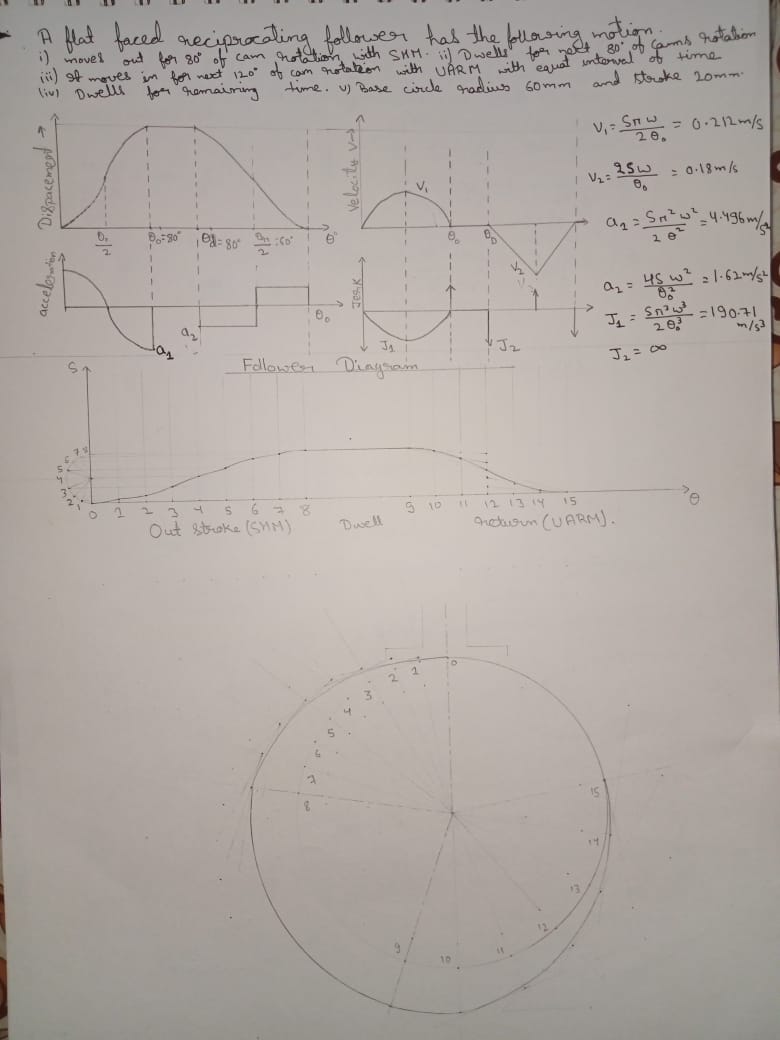 A flat faced reciprocating follower has the following motion.
i) moves out for 80° of cam rotation with SHM. ii) Dwells for next 80° of cams rotation
iii) It moves in for next 120° of cam rotation with UARM with equal interval of time
(iv) Dwells for remaining time. v) Base circle radius 60mm and stroke 20mm.
Dispacement →
θ₀/2
θ₀=80°
θd=80°
:60°
θ°
Velocity V→
V₁
θ₀
θD
V₂
V₁ = Sπω/2θ₀ = 0.212m/s
V₂ = 2Sω/θ₀ = 0.18m/s
a₂ = Sπ²ω²/2θ² = 4.496m/s²
a₂ = 4Sω²/θ₀² = 1.62m/s²
J₁ = Sπ³ω³/2θ₀³ = 190.71 m/s³
J₂ = ∞
acceleration
a₁
a₂
θ₀
Jerk
J₁
J₂
Follower Diagram
S
7,8
6
5
4
3
2
1
0 1 2 3 4 5 6 7 8 9 10 11 12 13 14 15
θ
Out Stroke (SHM) Dwell return (UARM).
0
1
2
3
4
5
6
7
8
9
10
11
12
13
14
15